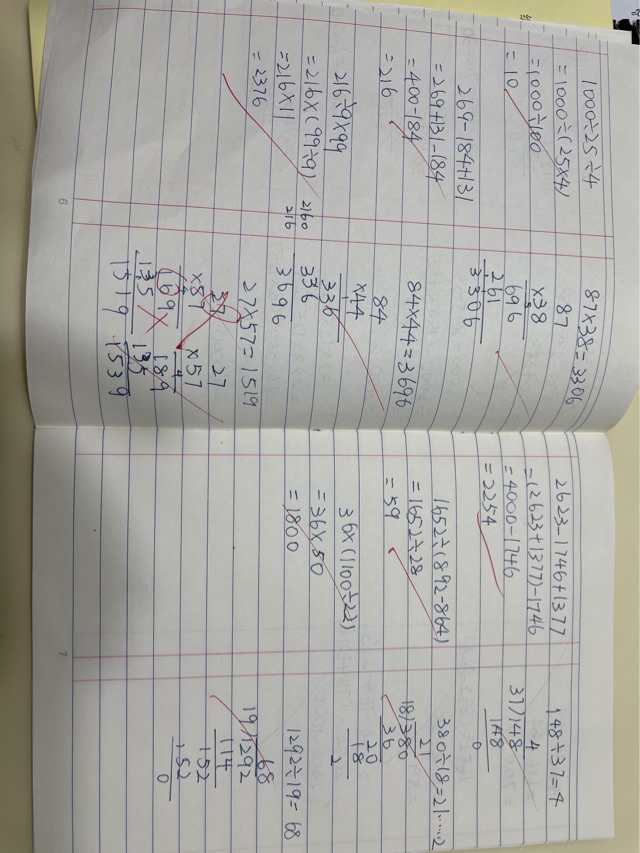 1000÷25÷4
=1000÷(25×4)
=1000÷100
=10
269-184+131
=269+131-184
=400-184
=216
216÷9×99
=216×(99÷9)
=216×11
=2376
2160
216
6
87×38=3306
87
×38
696
261
3306
84×44=3696
84
×44
336
336
3696
27×57=1519
27
×57
169
135
1519
27
×57
189
135
1539
2623-1746+1377
=(2623+1377)-1746
=4000-1746
=2254
1652÷(892-864)
=1652÷28
=59
36×(1100÷22)
=36×50
=1800
7
148÷37=4
4
37)148
148
0
380÷18=21……2
21
18)380
36
20
18
2
1292÷19=68
68
19)1292
114
152
152
0